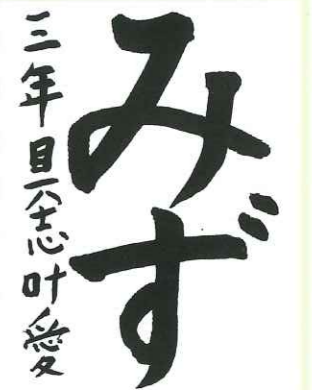 みず
三年具志叶愛